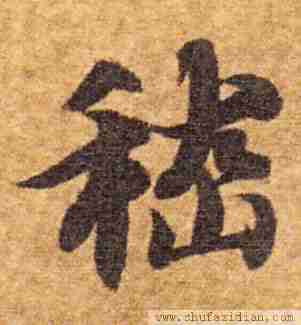 嵇
www.shufazidian.com